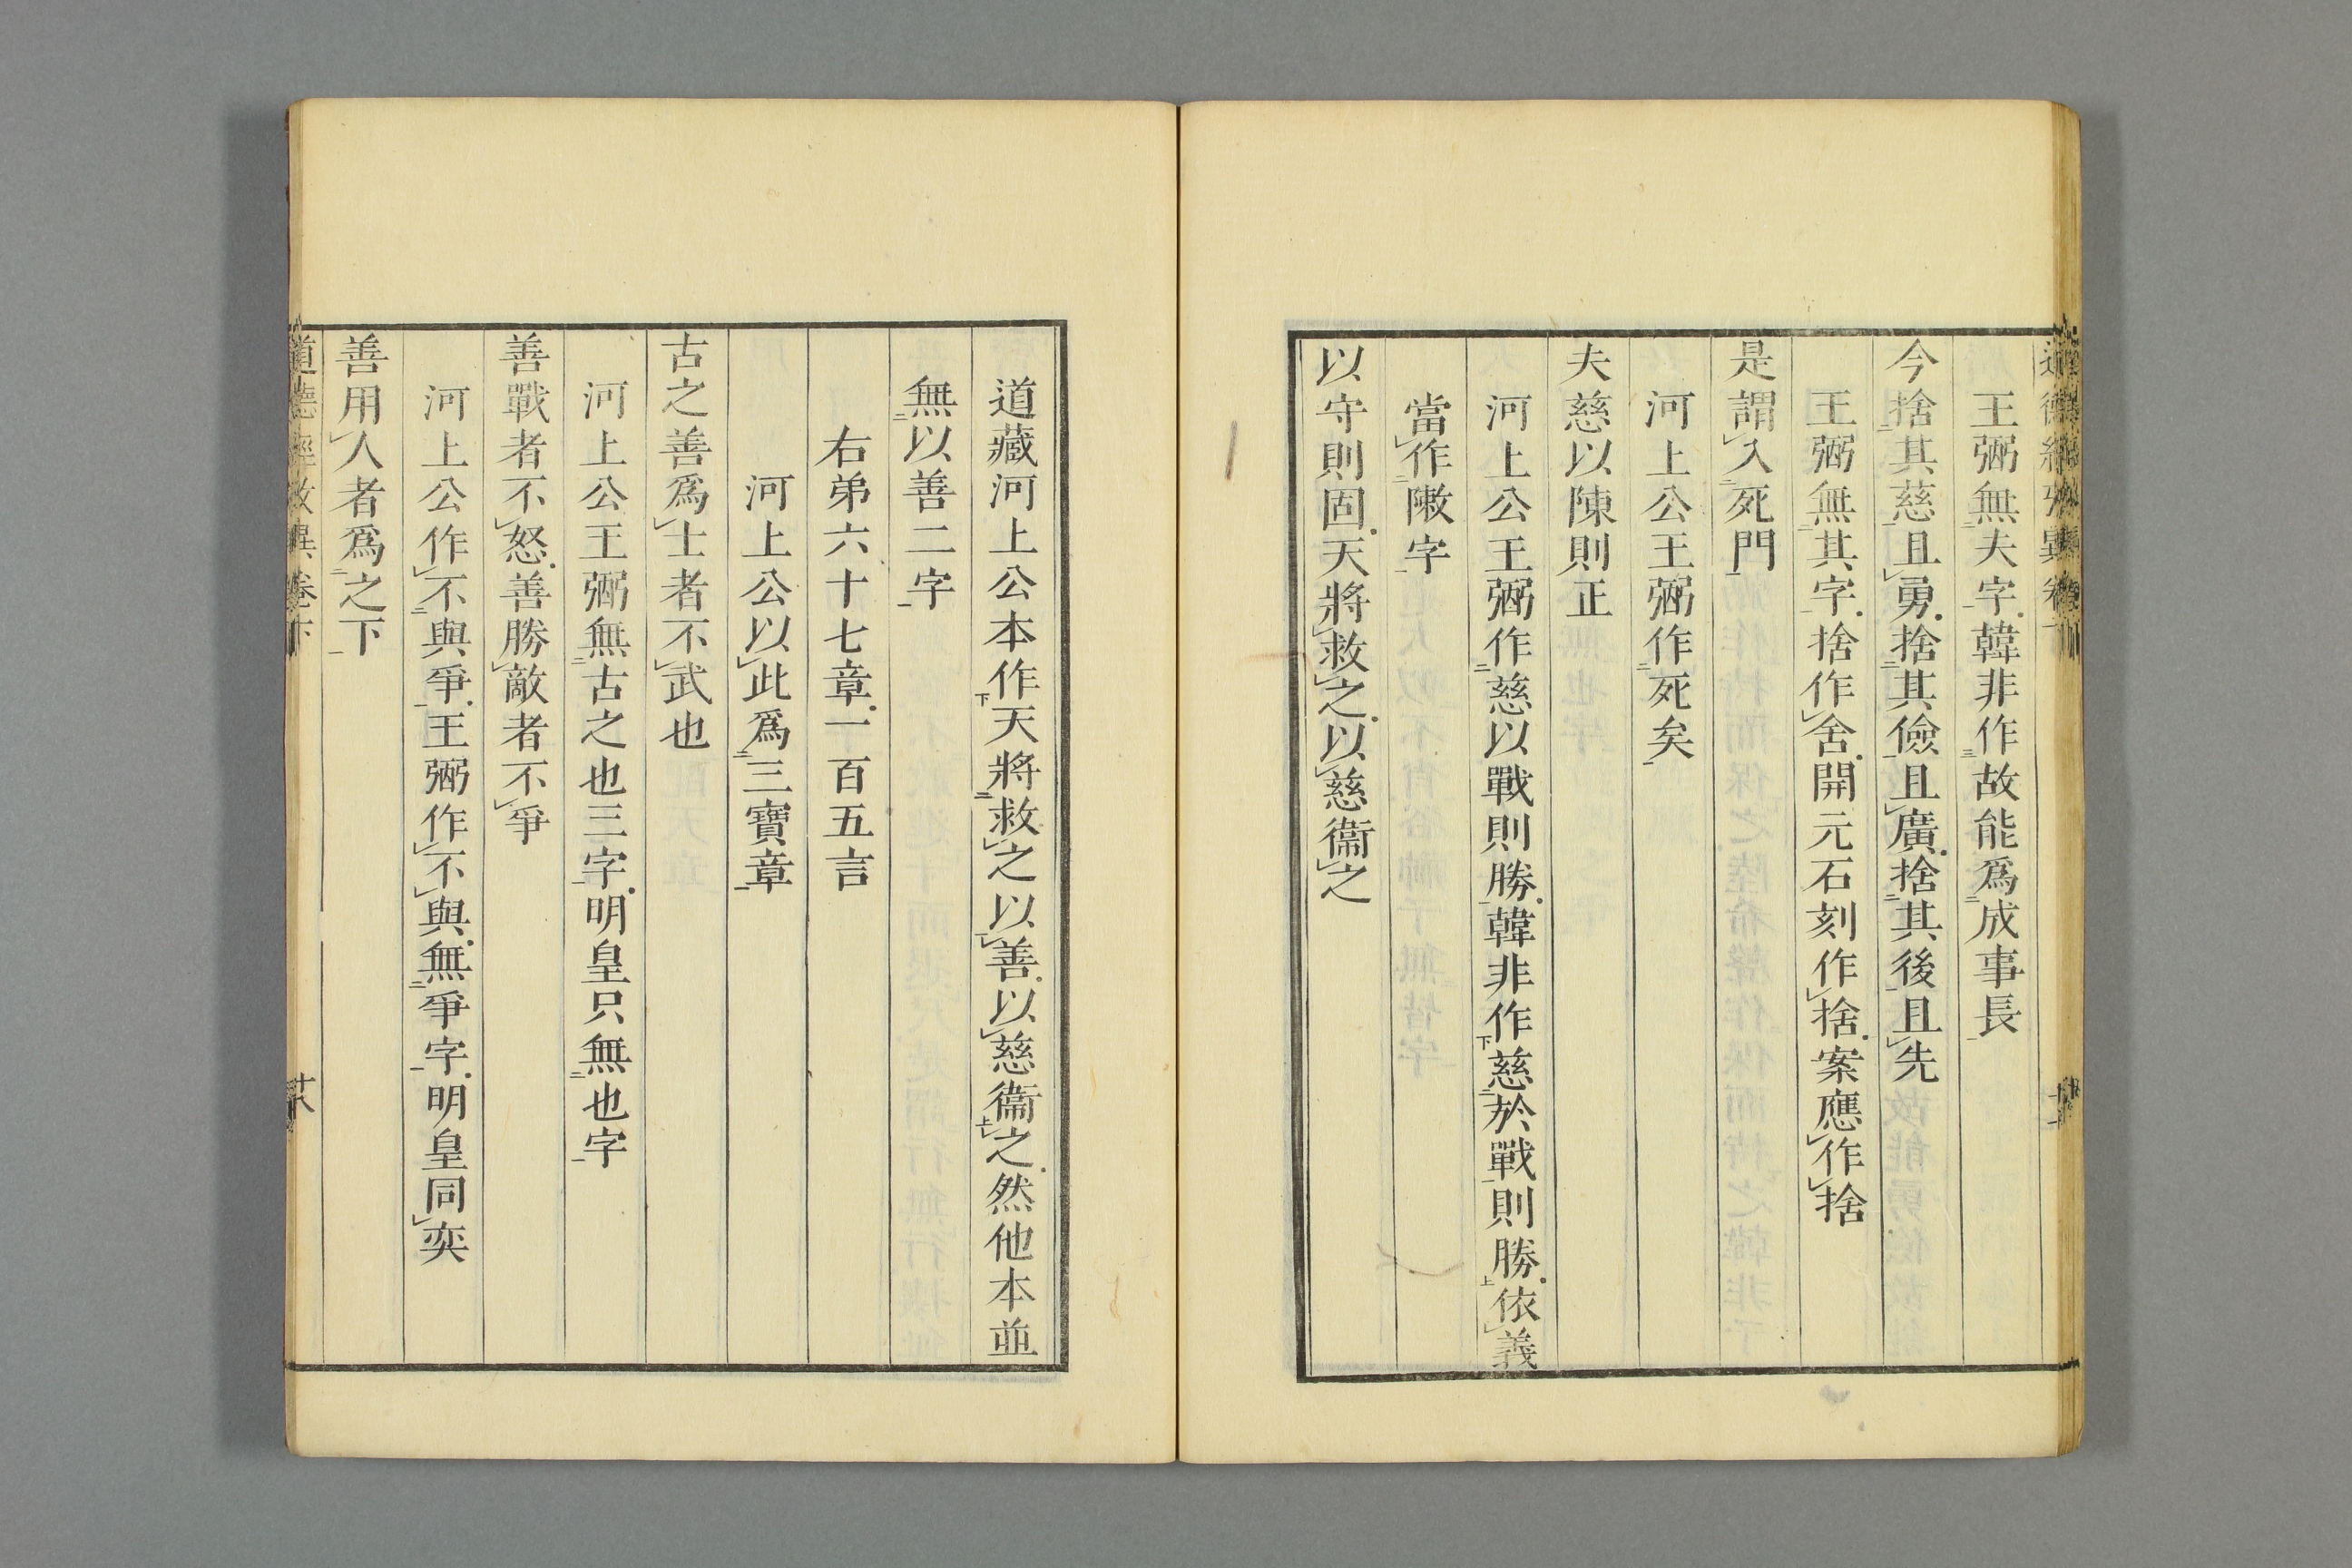 王弼無夫字韓非作故能爲成事長
今捨其慈且勇捨其儉且廣捨其後且先
王弼無其字捨作舍開元石刻作捨案應作捨
是謂入死門
河上公王弼作死矣
夫慈以陳則正
河上公王弼作慈以戰則勝韓非作慈於戰則勝依義
當作敶字
以守則固天將救之以慈衞之
道藏河上公本作天將救之以善以慈衞之然他本並
無以善二字
右弟六十七章一百五言
河上公以此爲三寶章
古之善爲士者不武也
河上公王弼無古之也三字明皇只無也字
善戰者不怒善勝敵者不爭
河上公作不與爭王弼作不與無爭字明皇同奕
善用人者爲之下
道德經攷異卷下
十八